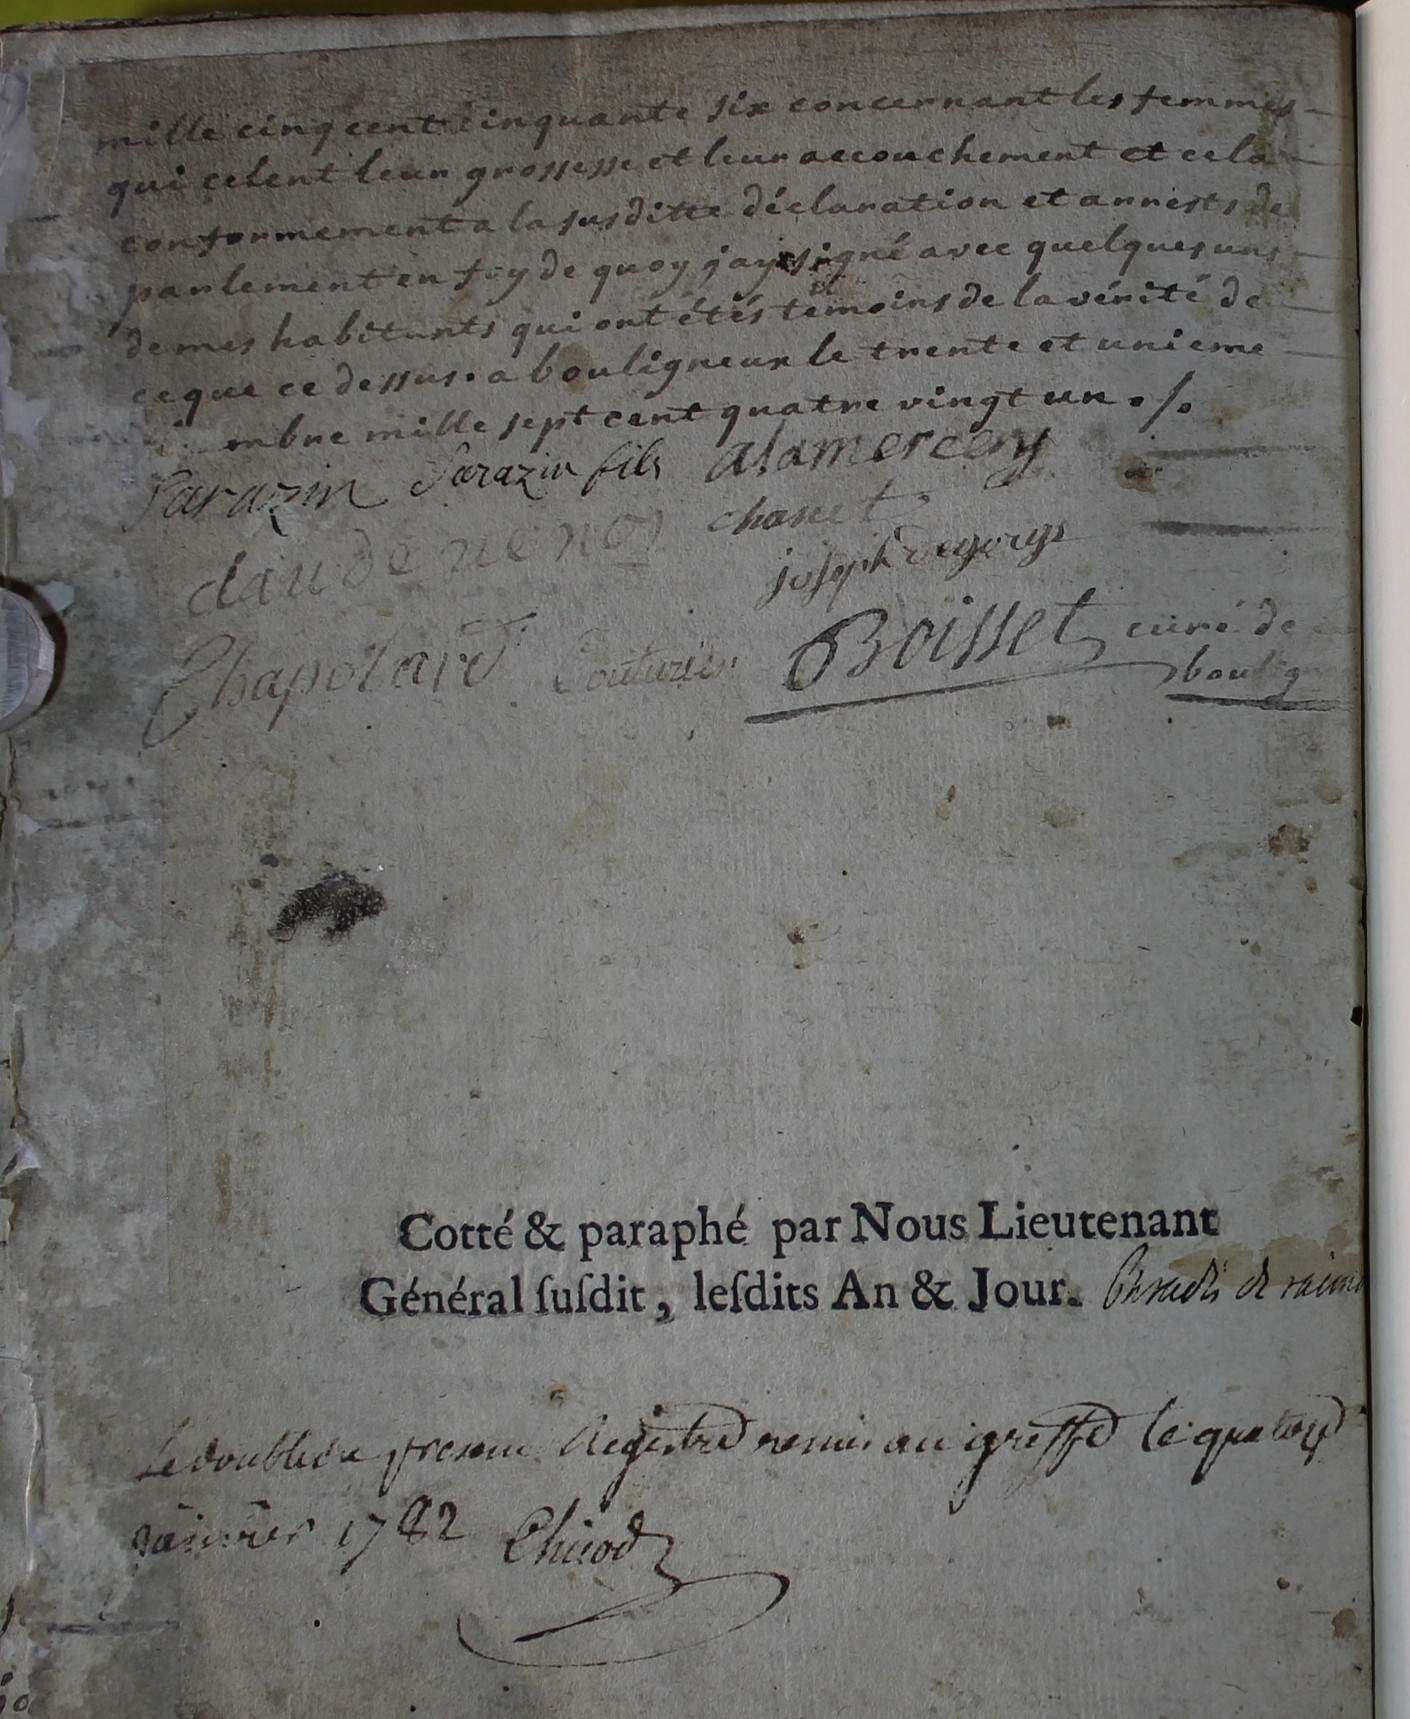 mille cinq cent cinquante six concernant les femmes
qui celent leur grossesse et leur accouchement et cela
conformement a la susditte déclaration et arrests de
parlement en foy de quoy jay signé avec quelques uns
de mes habitants qui ont étés témoins de la vérité de
ce que ce dessus. a bouligneux le trente et unieme
mbre mille sept cent quatre vingt un ./.
Sarazin Sarazin fils alamercery
claude chanet
joseph
Chapolard Couturier Boisset curé de
boulig
Cotté & paraphé par Nous Lieutenant
Général ſuſdit, leſdits An & Jour.
Le double du present Registre remis au greffe le quatorze
janvier 1782